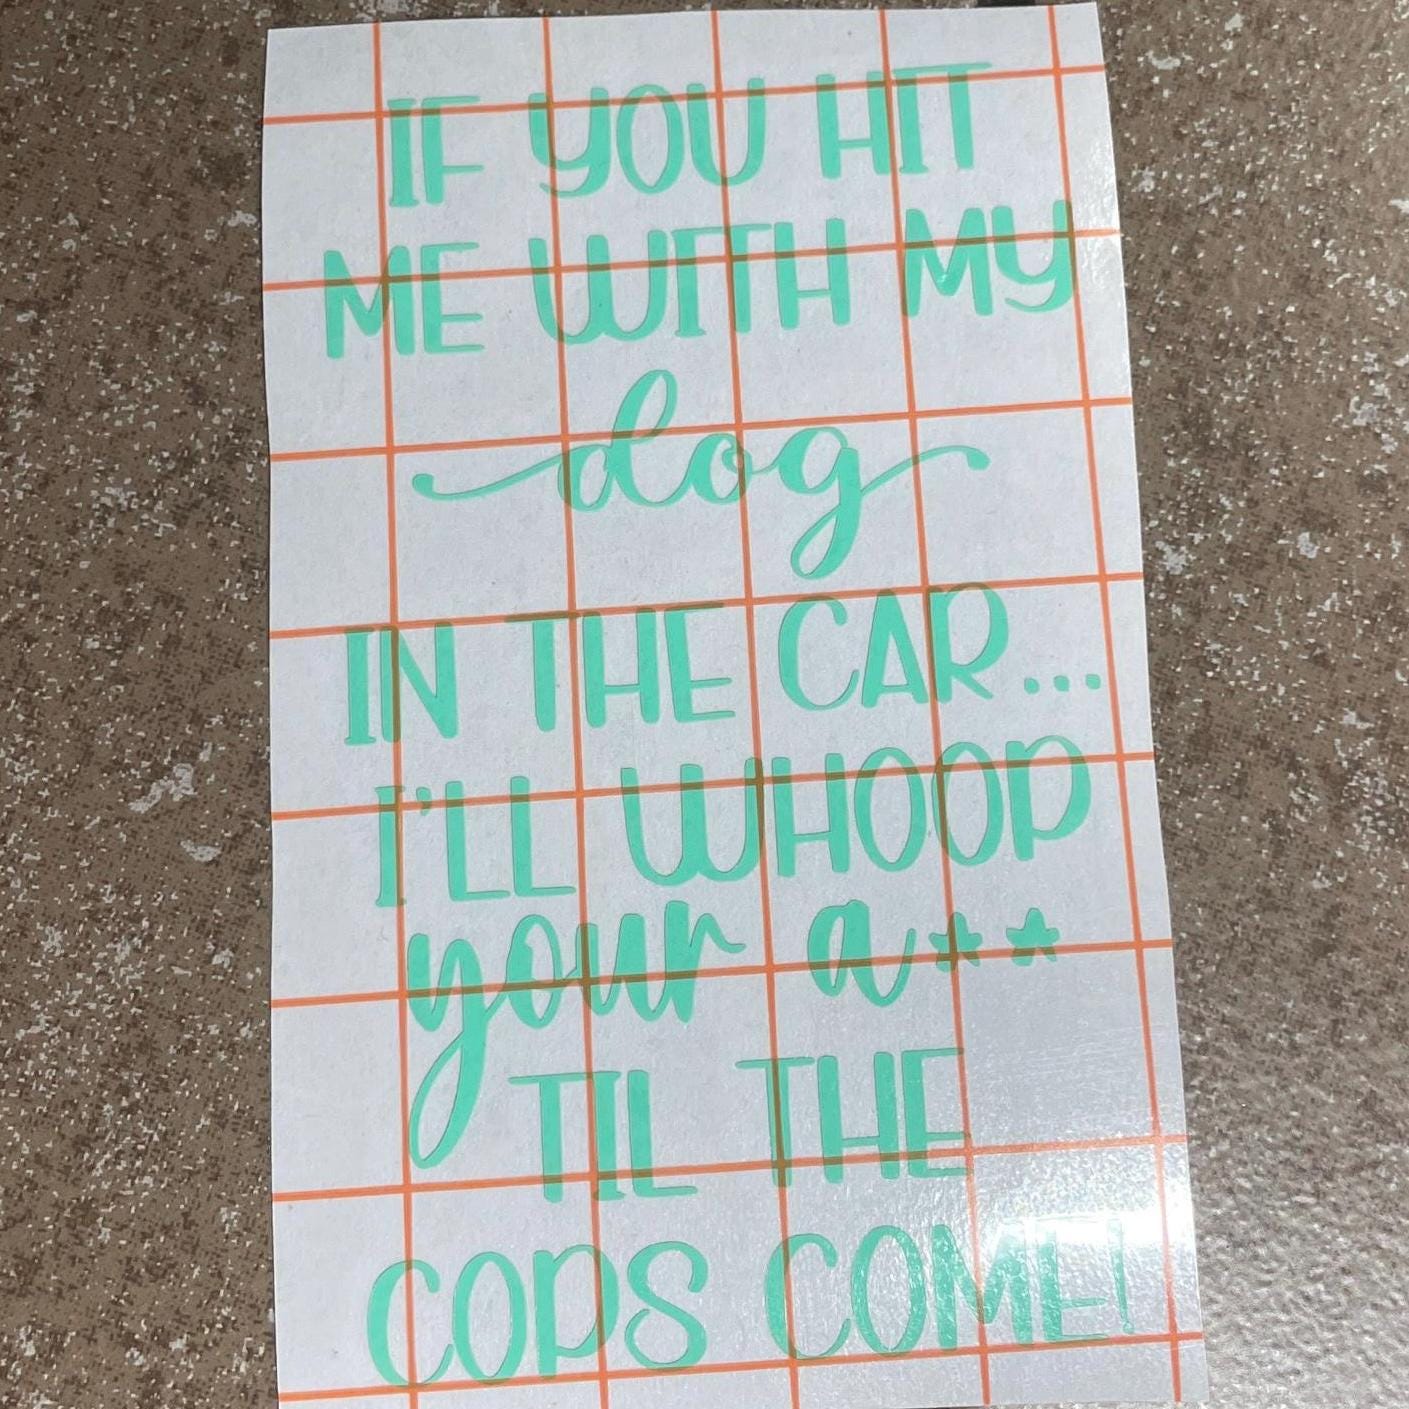 IF YOU HIT
ME WITH MY
dog
IN THE CAR...
I'LL WHOOP
your a**
TIL THE
COPS COME!